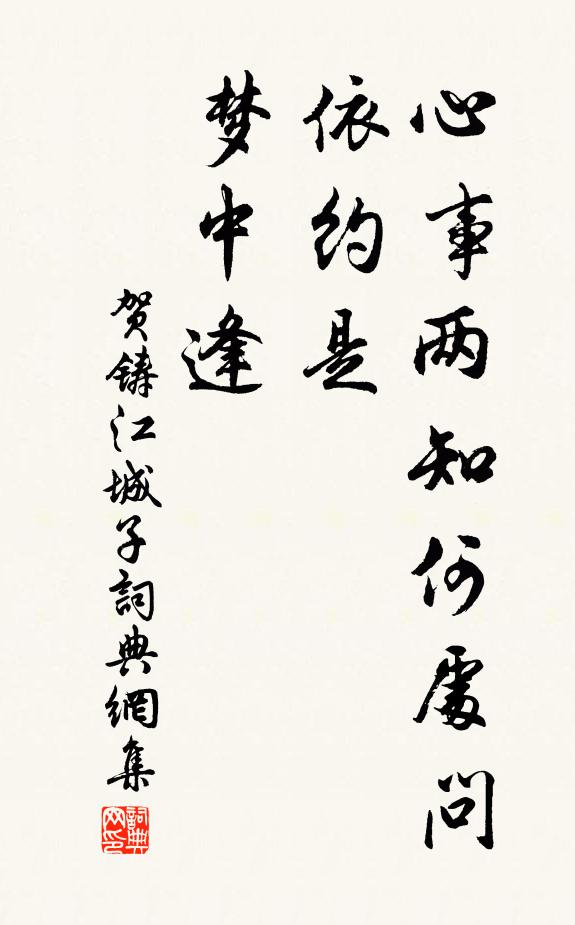 心事两知何處问
依约是
梦中逢
贺鑄江城子詞典網集
詞典网印